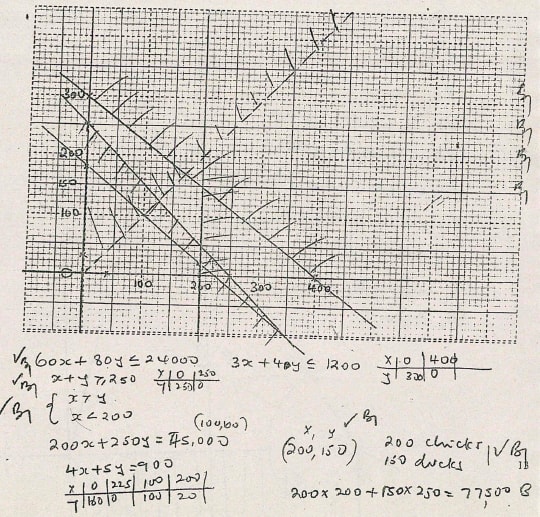 300
200
150
100
0
100 200 300 400
B1
B1
B1
B1
✓B1 60x + 80y ≤ 24000 3x + 4y ≤ 1200 x | 0 | 400
y | 300 | 0
✓B1 x + y ≥ 250 x | 0 | 250
y | 250 | 0
✓B1 { x > y
x < 200
(100,100)
200x + 250y = 45,000
4x + 5y = 900
x | 0 | 225 | 100 | 200
y | 180 | 0 | 100 | 20
x, y ✓B1
(200, 150) 200 chicks
150 ducks ✓B1
200 x 200 + 150 x 250 = 77,500 B